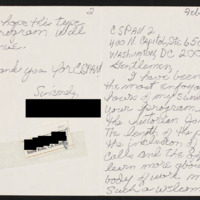 2
hope this type
program will
Thank you for CSPAN
Sincerely,
Feb
CSPAN 2
400 N. Capitol St. 650
Washington DC 200
Gentlemen
I have been
the most enjoya
hours of my Sun
your program
the
The length of the p
the inclusion of
calls and the
learn more abou
body of work m
Such a welcom